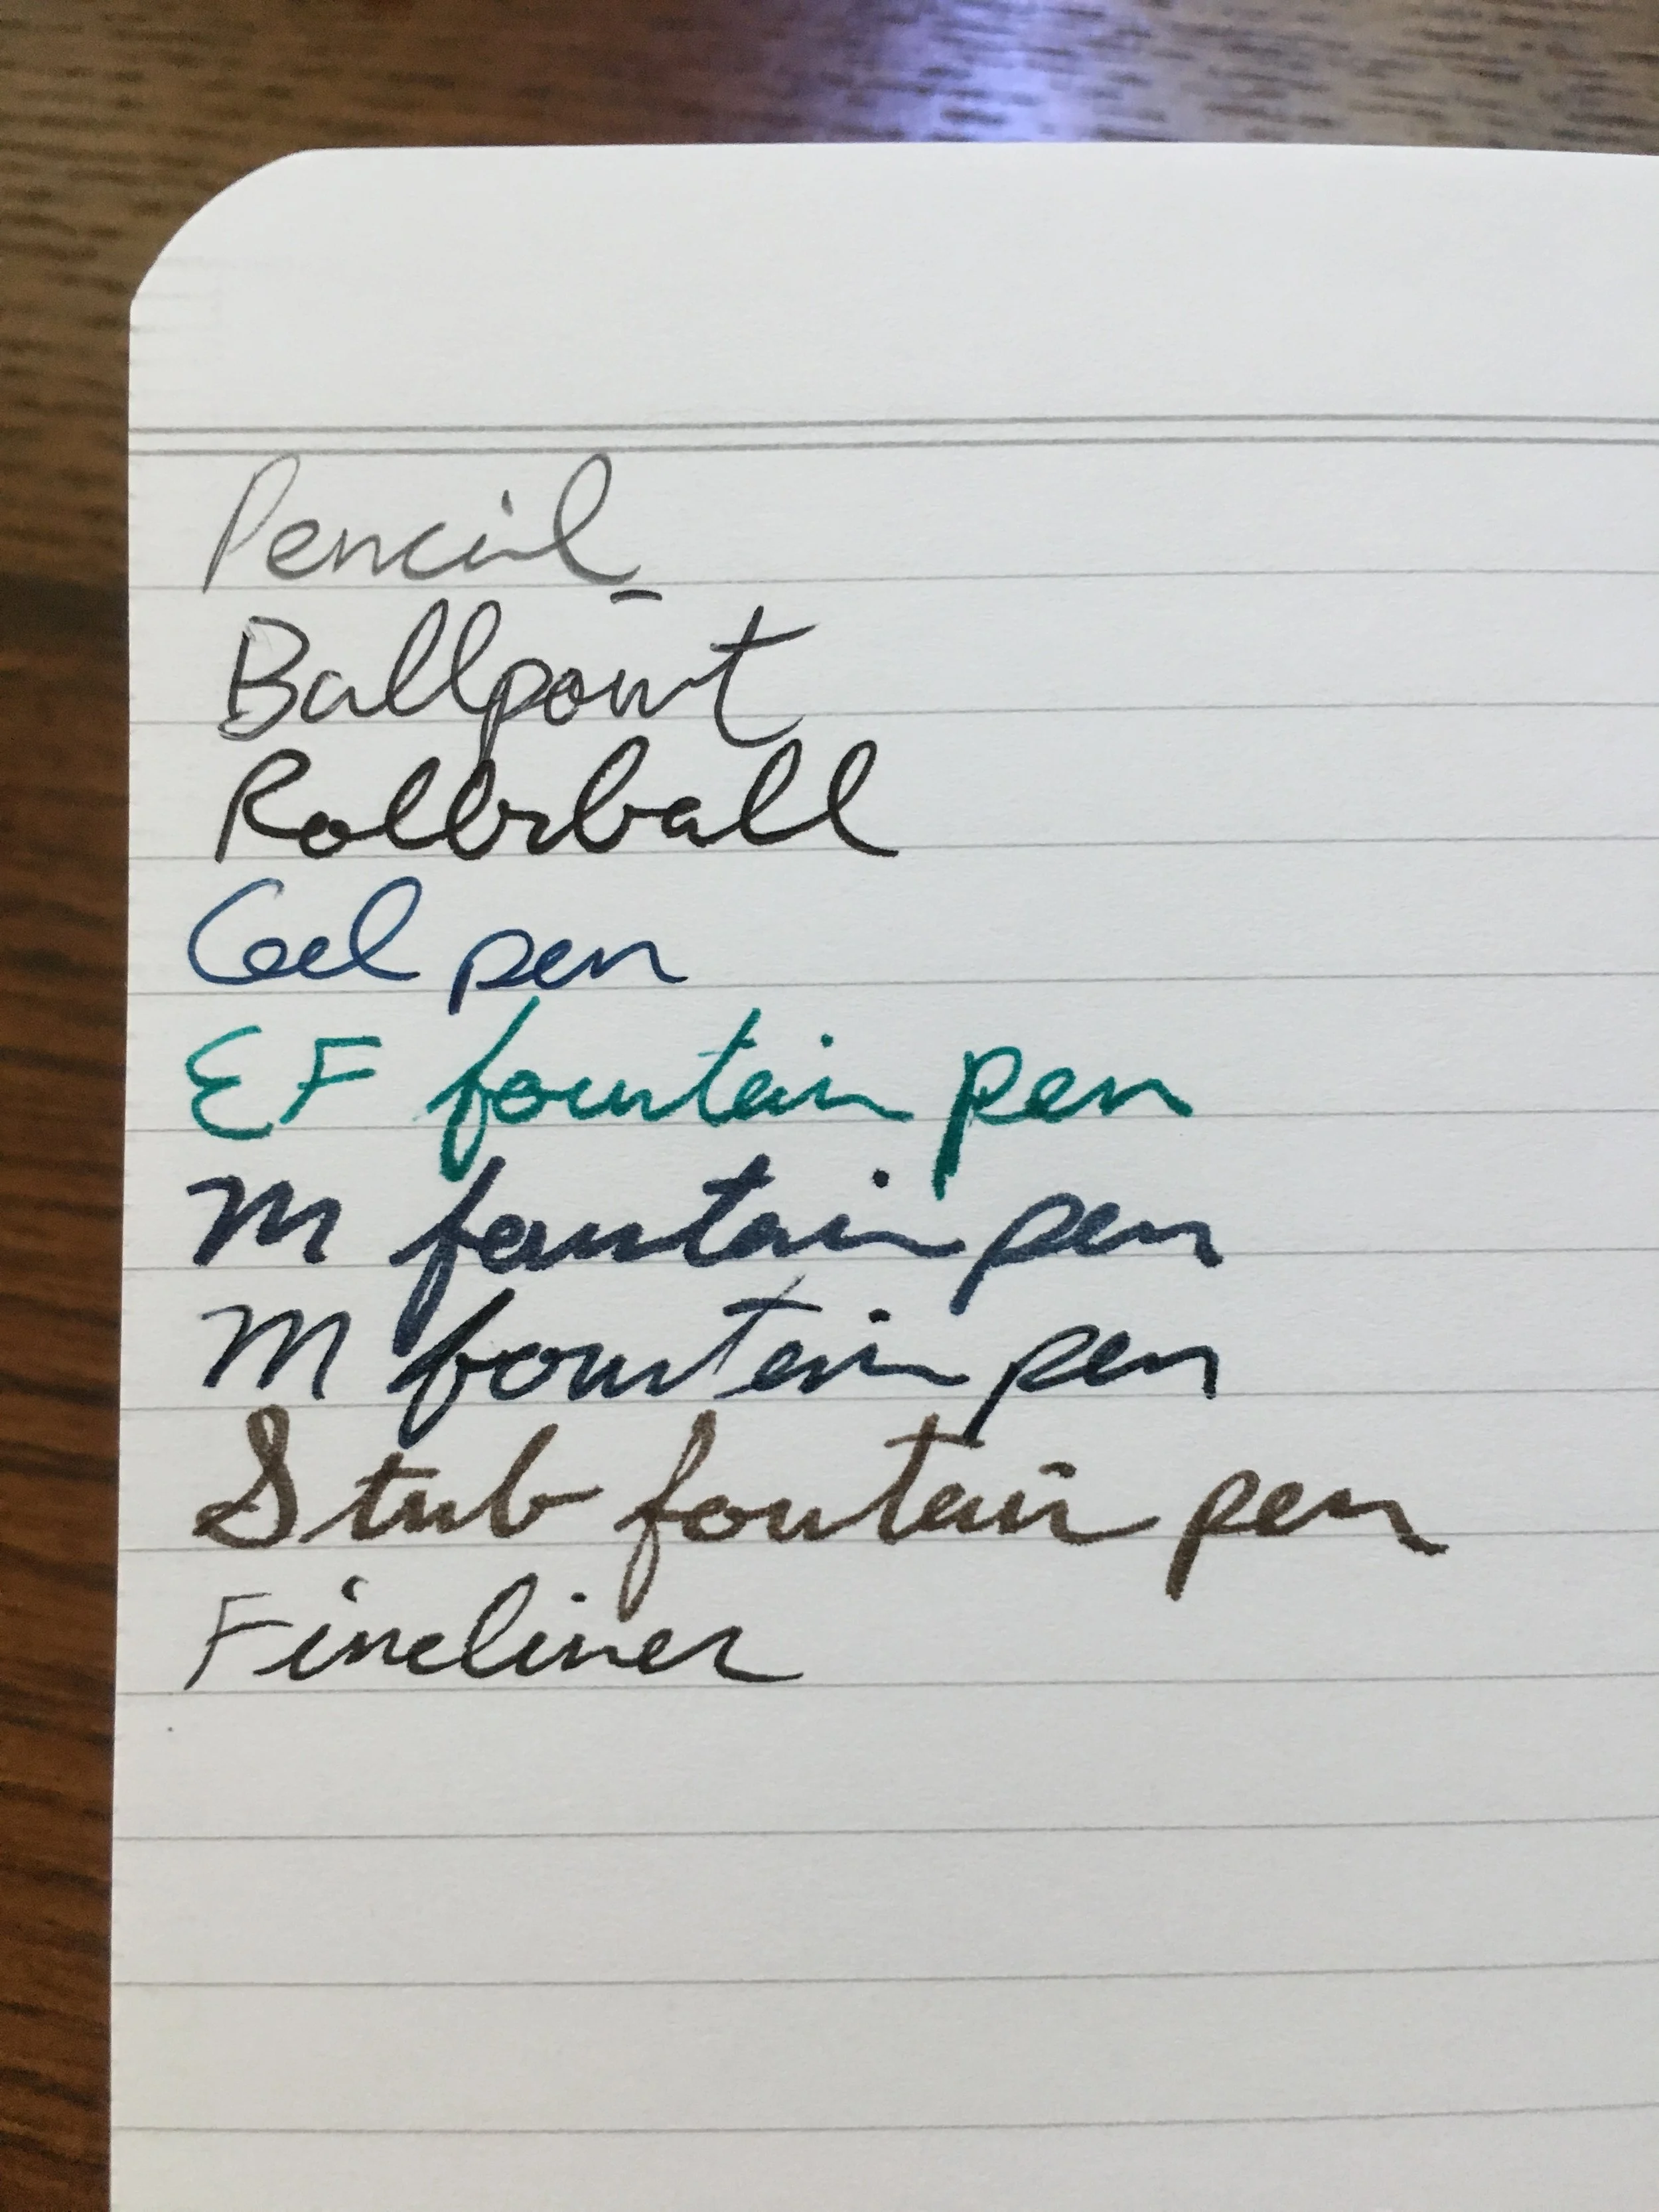 Pencil
Ballpoint
Rollerball
Gel pen
EF fountain pen
M fountain pen
M fountain pen
Stub foutain pen
Fineliner